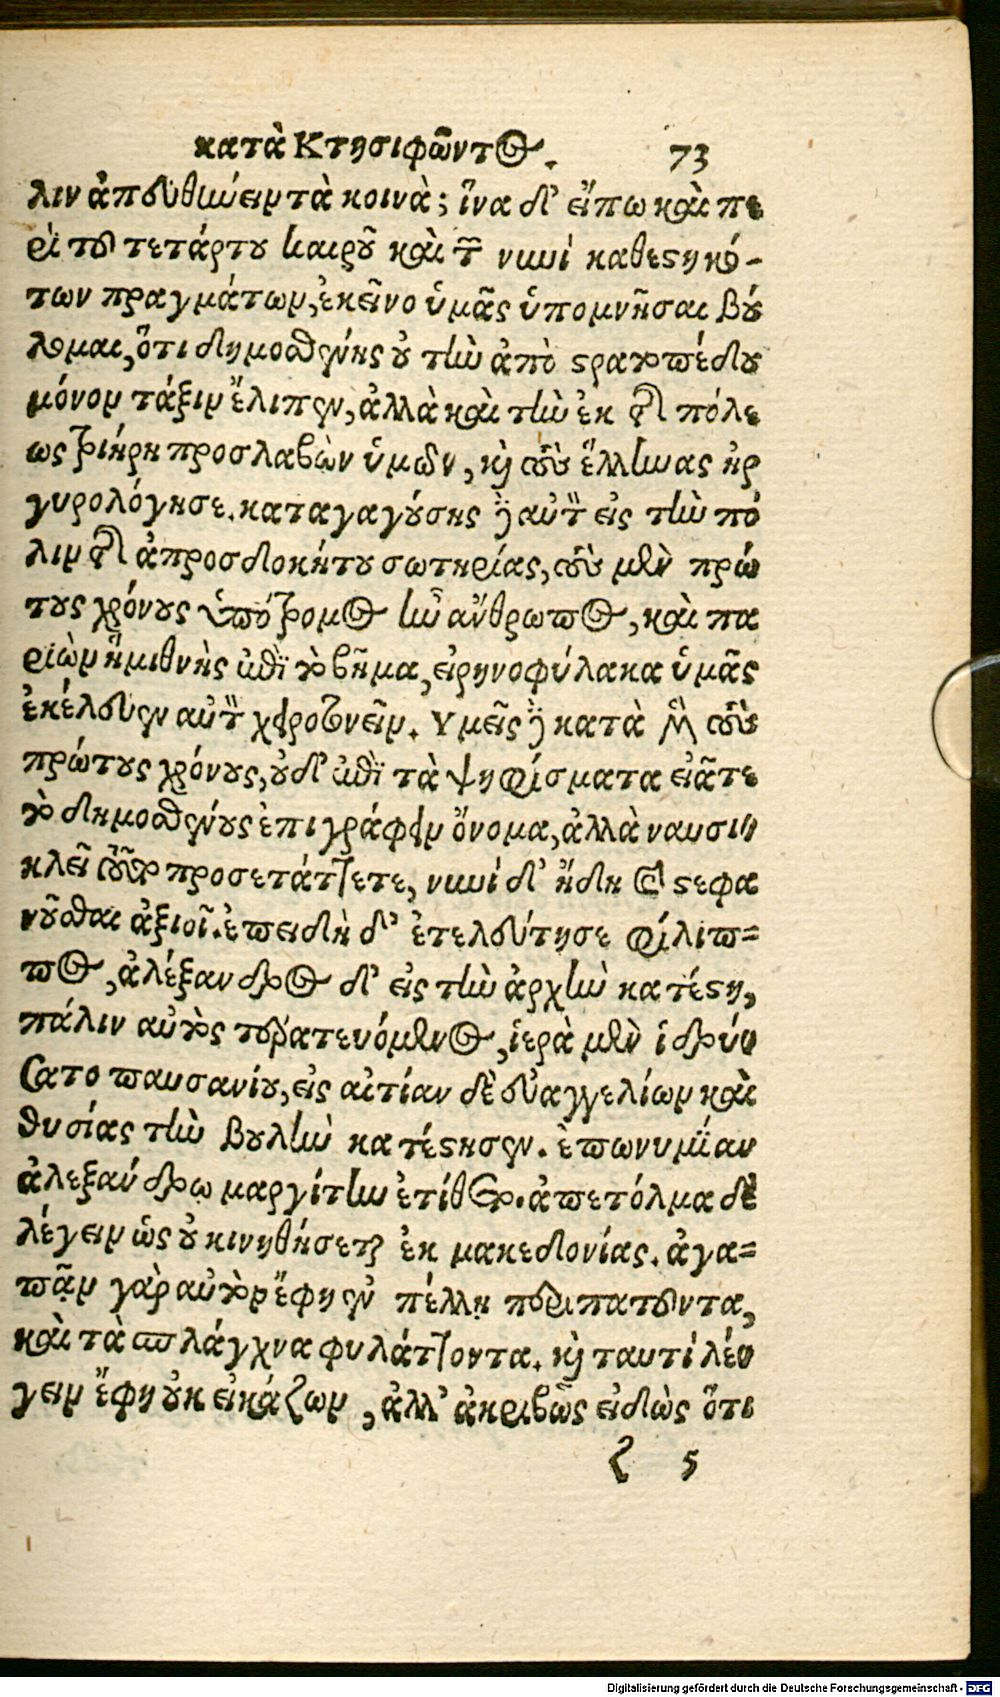 κατὰ Κτησιφῶντος. 73
λιν ἀπευθύνειν τὰ κοινὰ; ἵνα δ' εἴπω καὶ πε
ρὶ τοῦ τετάρτου καιροῦ καὶ τῶν νυνὶ καθεστηκό-
των πραγμάτων, ἐκεῖνο ὑμᾶς ὑπομνῆσαι βού
λομαι, ὅτι δημοσθένης οὐ τὴν ἀπὸ στρατοπέδου
μόνον τάξιν ἔλιπεν, ἀλλὰ καὶ τὴν ἐκ τῆς πόλε
ως τριήρη προσλαβὼν ὑμῶν, καὶ τοὺς ἕλληνας ἠρ
γυρολόγησε. καταγαγούσης δ' αὐτὸν εἰς τὴν πό
λιν τῆς ἀπροσδοκήτου σωτηρίας, τοὺς μὲν πρώ
τους χρόνους ὑπότρομος ἦν ἄνθρωπος, καὶ πα
ριὼν ἡμιθνὴς ἐπὶ τὸ βῆμα, εἰρηνοφύλακα ὑμᾶς
ἐκέλευεν αὐτὸν χειροτονεῖν. Υμεῖς δὲ κατὰ μὲν τοὺς
πρώτους χρόνους, οὐδ' ἐπὶ τὰ ψηφίσματα εἰᾶτε
τὸ δημοσθένους ἐπιγράφειν ὄνομα, ἀλλὰ ναυσι
κλεῖ τοῦτο προσετάττετε, νυνὶ δ' ἤδη καὶ στεφα
νοῦσθαι ἀξιοῖ. ἐπειδὴ δ' ἐτελεύτησε φίλιπ=
πος, ἀλέξανδρος δ' εἰς τὴν ἀρχὴν κατέστη,
πάλιν αὐτὸς τερατευόμενος, ἱερὰ μὲν ἱδρύ
σατο παυσανίου, εἰς αἰτίαν δὲ εὐαγγελίων καὶ
θυσίας τὴν βουλὴν κατέστησεν. ἐπωνυμίαν
ἀλεξάνδρῳ μαργίτην ἐτίθετο. ἀπετόλμα δὲ
λέγειν ὡς οὐ κινηθήσεται ἐκ μακεδονίας. ἀγα=
πᾷν γὰρ αὐτὸν ἔφη ἐν πέλλῃ περιπατοῦντα,
καὶ τὰ σπλάγχνα φυλάττοντα. καὶ ταυτὶ λέ
γειν ἔφη οὐκ εἰκάζων, ἀλλ' ἀκριβῶς εἰδὼς ὅτι
ζ 5
Digitalisierung gefördert durch die Deutsche Forschungsgemeinschaft - DFG